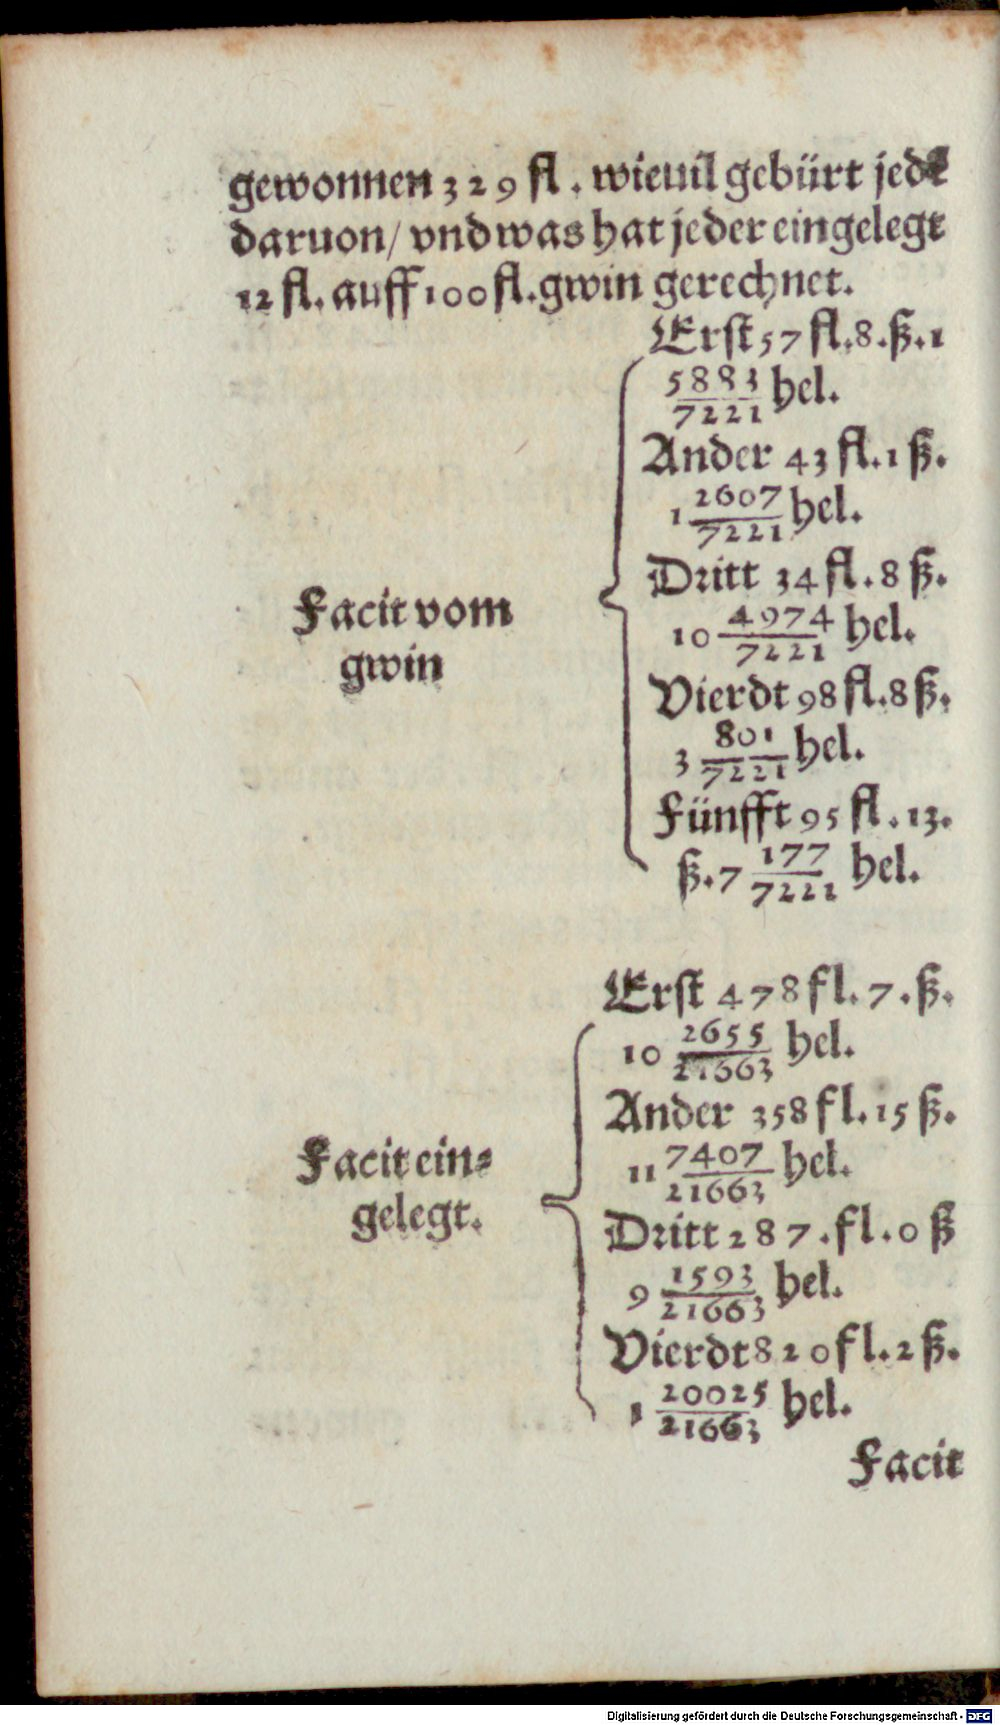 gewonnen 329 fl. wieuil gebürt jede
daruon/ vnd was hat jeder eingelegt
12 fl. auff 100 fl. gwin gerechnet.
Facit vom
gwin
Erst 57 fl. 8. ß. 1
5883/7221 hel.
Ander 43 fl. 1 ß.
1 2607/7221 hel.
Dritt 34 fl. 8 ß.
10 4974/7221 hel.
Vierdt 98 fl. 8 ß.
3 801/7221 hel.
Fünfft 95 fl. 13.
ß. 7 177/7221 hel.
Facit ein-
gelegt.
Erst 478 fl. 7. ß.
10 2655/21663 hel.
Ander 358 fl. 15 ß.
11 7407/21663 hel.
Dritt 287. fl. 0 ß
9 1593/21663 hel.
Vierdt 820 fl. 2 ß.
1 20025/21663 hel.
Facit
Digitalisierung gefördert durch die Deutsche Forschungsgemeinschaft - DFG